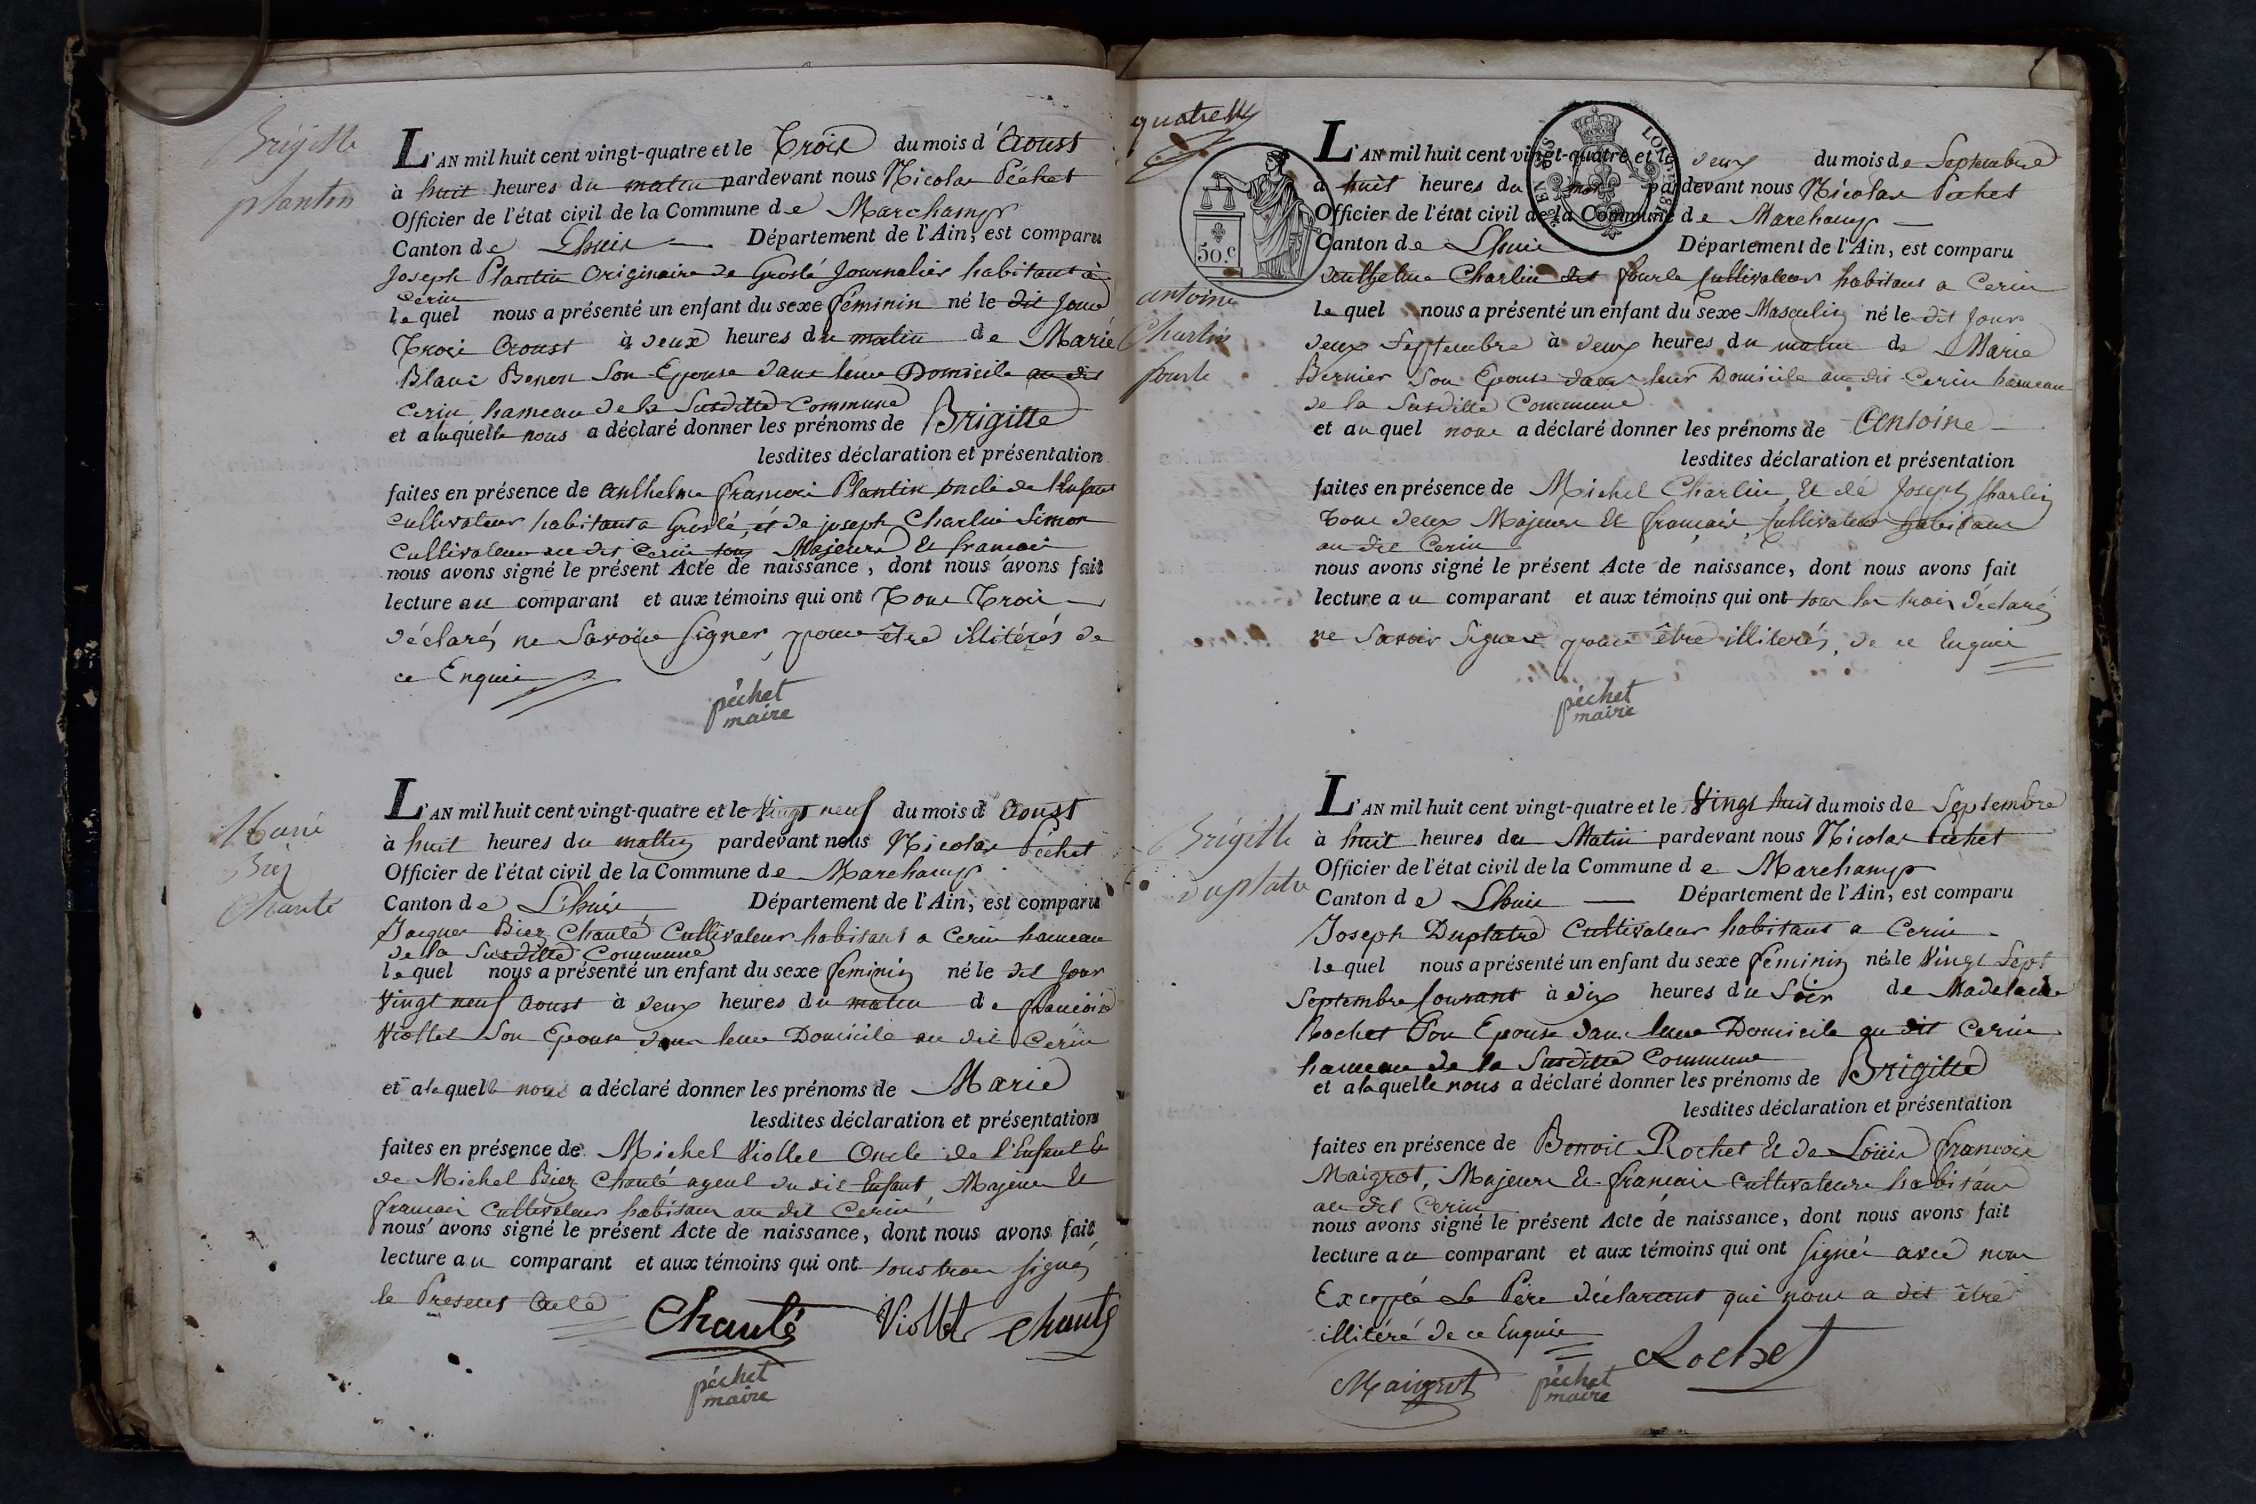 Brigitte
plantin
L'AN mil huit cent vingt-quatre et le Trois du mois d'Aoust
à huit heures du matin pardevant nous Nicolas Péchet
Officier de l'état civil de la Commune de Marchamp
Canton de Lhuis Département de l'Ain, est comparu
Joseph Plantin Originaire de Groslé Journalier habitant à
Cerin
le quel nous a présenté un enfant du sexe féminin né le dit Jour
Trois Aoust à deux heures du matin de Marie
Blanc Benon Son Epouse dans leur Domicile au dit
Cerin hameau de la Susditte Commune
et a laquelle nous a déclaré donner les prénoms de Brigitte
lesdites déclaration et présentation
faites en présence de Anthelme françois Plantin oncle de l'Enfant
Cultivateur habitant a Groslé, et de joseph Charlin Simon
Cultivateur au dit Cerin tous Majeurs et francois
nous avons signé le présent Acte de naissance, dont nous avons fait
lecture au comparant et aux témoins qui ont Tous Trois
déclarés ne Savoir signer, pour être illitérés de
ce Enquis
péchet
maire
Marie
Biez
Chanté
L'AN mil huit cent vingt-quatre et le Vingt neuf du mois d'Aoust
à huit heures du mattin pardevant nous Nicolas Péchet
Officier de l'état civil de la Commune de Marchamp
Canton de Lhuis Département de l'Ain, est comparu
Jacques Biez Chanté Cultivateur habitant a Cerin hameau
de la Susditte Commune
le quel nous a présenté un enfant du sexe feminin né le dit Jour
Vingt neuf Aoust à deux heures du matin de francoise
Viollet Son Epouse dans leur Domicile au dit Cerin
et a laquelle nous a déclaré donner les prénoms de Marie
lesdites déclaration et présentation
faites en présence de Michel Viollet Oncle de l'Enfant Et
de Michel Biez Chanté ayeul du dit Enfant, Majeurs Et
francais Cultivateurs habitans au dit Cerin
nous avons signé le présent Acte de naissance, dont nous avons fait
lecture au comparant et aux témoins qui ont tous trois signés
le Present Acte
Chanté Viollet Chanté
péchet
maire
quatre
50.c
antoine
Charlin
fourle
L'AN mil huit cent vingt-quatre et le deux du mois de Septembre
à huit heures du pardevant nous Nicolas Péchet
Officier de l'état civil de la Commune de Marchamp
Canton de Lhuis Département de l'Ain, est comparu
Anthelme Charlin dit fourle Cultivateur habitant a Cerin
le quel nous a présenté un enfant du sexe Masculin né le dit Jour
deux Septembre à deux heures du matin de Marie
Bernier Son Epouse dans leur Domicile au dit Cerin hameau
de la Susditte Commune
et au quel nous a déclaré donner les prénoms de Antoine
lesdites déclaration et présentation
faites en présence de Michel Charlin, Et de Joseph Charlin
Tous deux Majeurs Et français, Cultivateurs habitans
au dit Cerin
nous avons signé le présent Acte de naissance, dont nous avons fait
lecture au comparant et aux témoins qui ont tous les trois déclarés
ne Savoir Signer pour être illiterés, de ce Enquis
péchet
maire
Brigitte
duplatre
L'AN mil huit cent vingt-quatre et le Vingt huit du mois de Septembre
à huit heures du Matin pardevant nous Nicolas Péchet
Officier de l'état civil de la Commune de Marchamp
Canton de Lhuis Département de l'Ain, est comparu
Joseph Duplatre Cultivateur habitant a Cerin
le quel nous a présenté un enfant du sexe féminin né le Vingt Sept
Septembre Courant à dix heures du Soir de Madelaine
Rochet Son Epouse dans leur Domicile au dit Cerin
hameau de la Susditte Commune
et a laquelle nous a déclaré donner les prénoms de Brigitte
lesdites déclaration et présentation
faites en présence de Benoit Rochet Et de Louis francois
Maigrot, Majeurs Et francais Cultivateurs habitans
au dit Cerin
nous avons signé le présent Acte de naissance, dont nous avons fait
lecture au comparant et aux témoins qui ont signés avec nous
Excepté Le Père déclarant qui nous a dit être
illitéré de ce Enquis
Maigrot péchet Rochet
maire